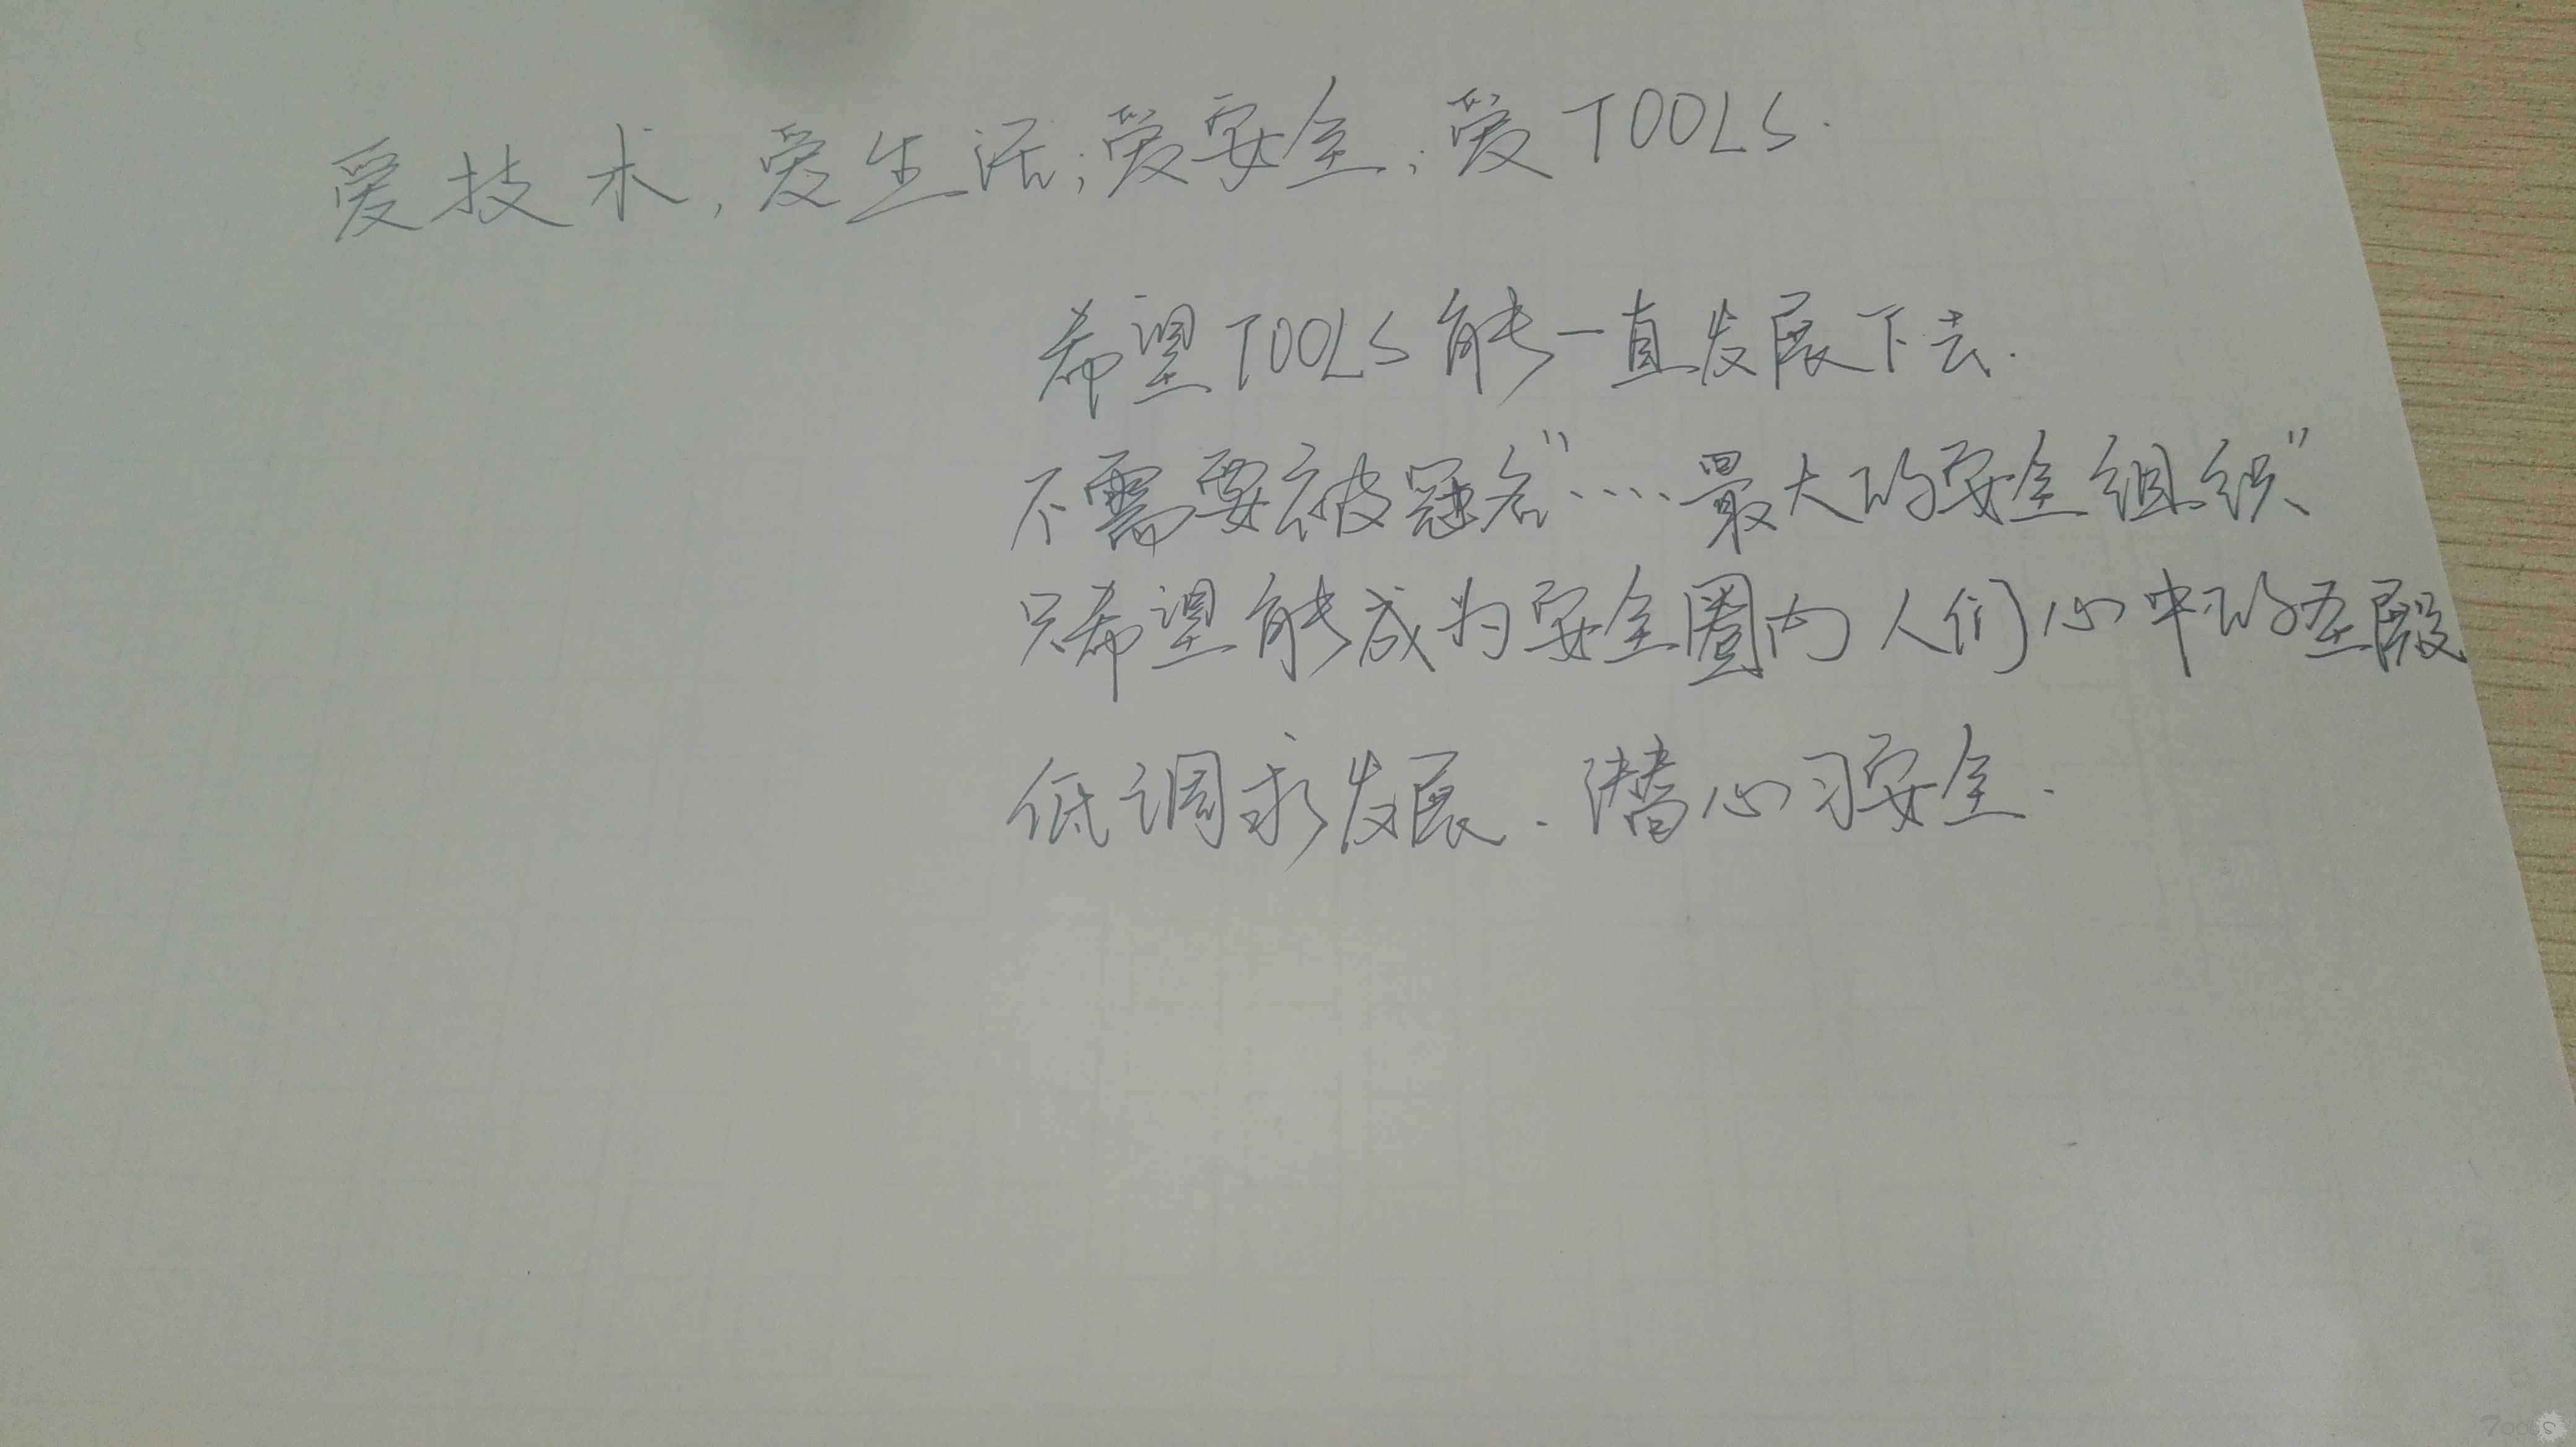 爱技术，爱生活；爱安全；爱TOOLS.
希望TOOLS能一直发展下去.
不需要被冠名"....最大的安全组织"
只希望能成为安全圈内人们心中的圣殿
低调求发展.潜心习安全.
TOOLS